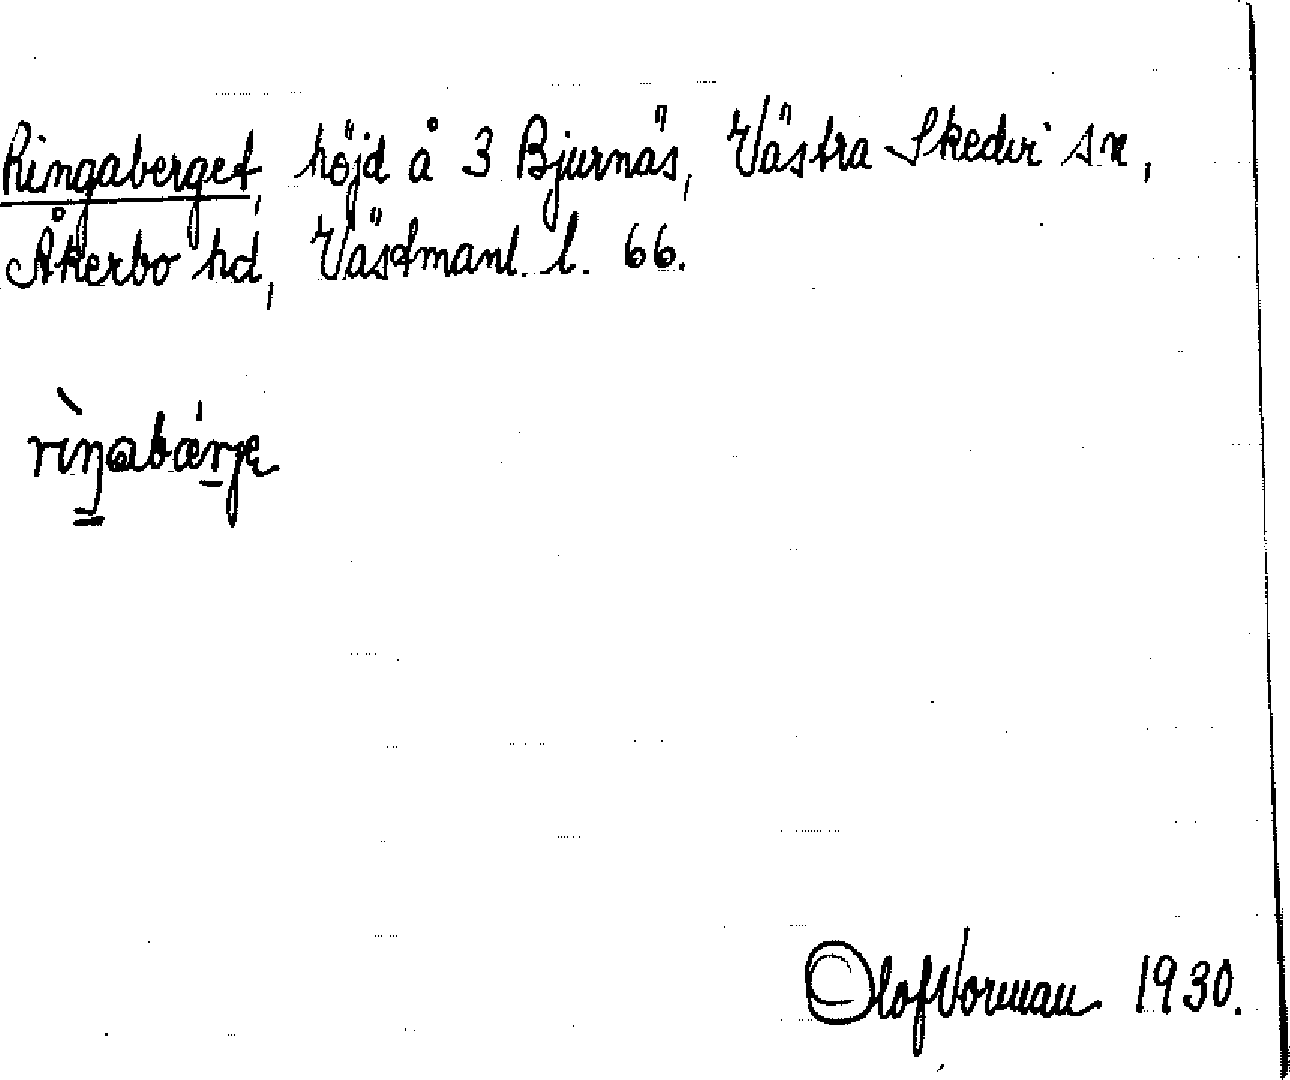 Ringaberget, höjd å 3 Bjurnäs, Västra Skedvi sn,
Åkerbo hd, Västmanl. l. 66.
rìŋabǽrje
Olof Vorman 1930.